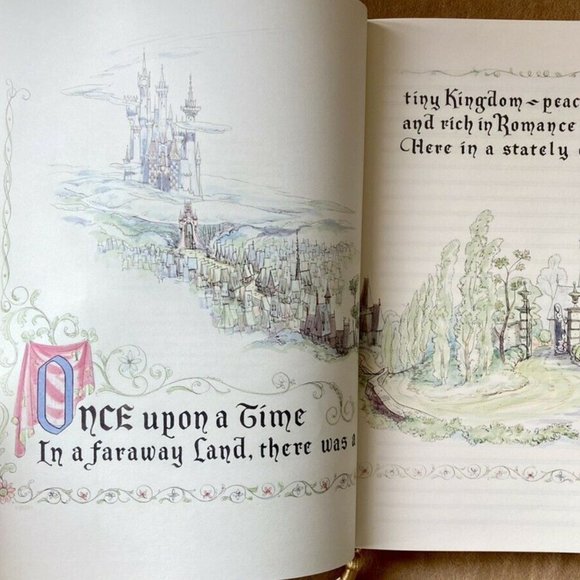 ONCE upon a Time
In a faraway Land, there was a
tiny Kingdom ~ peac
and rich in Romance
Here in a stately